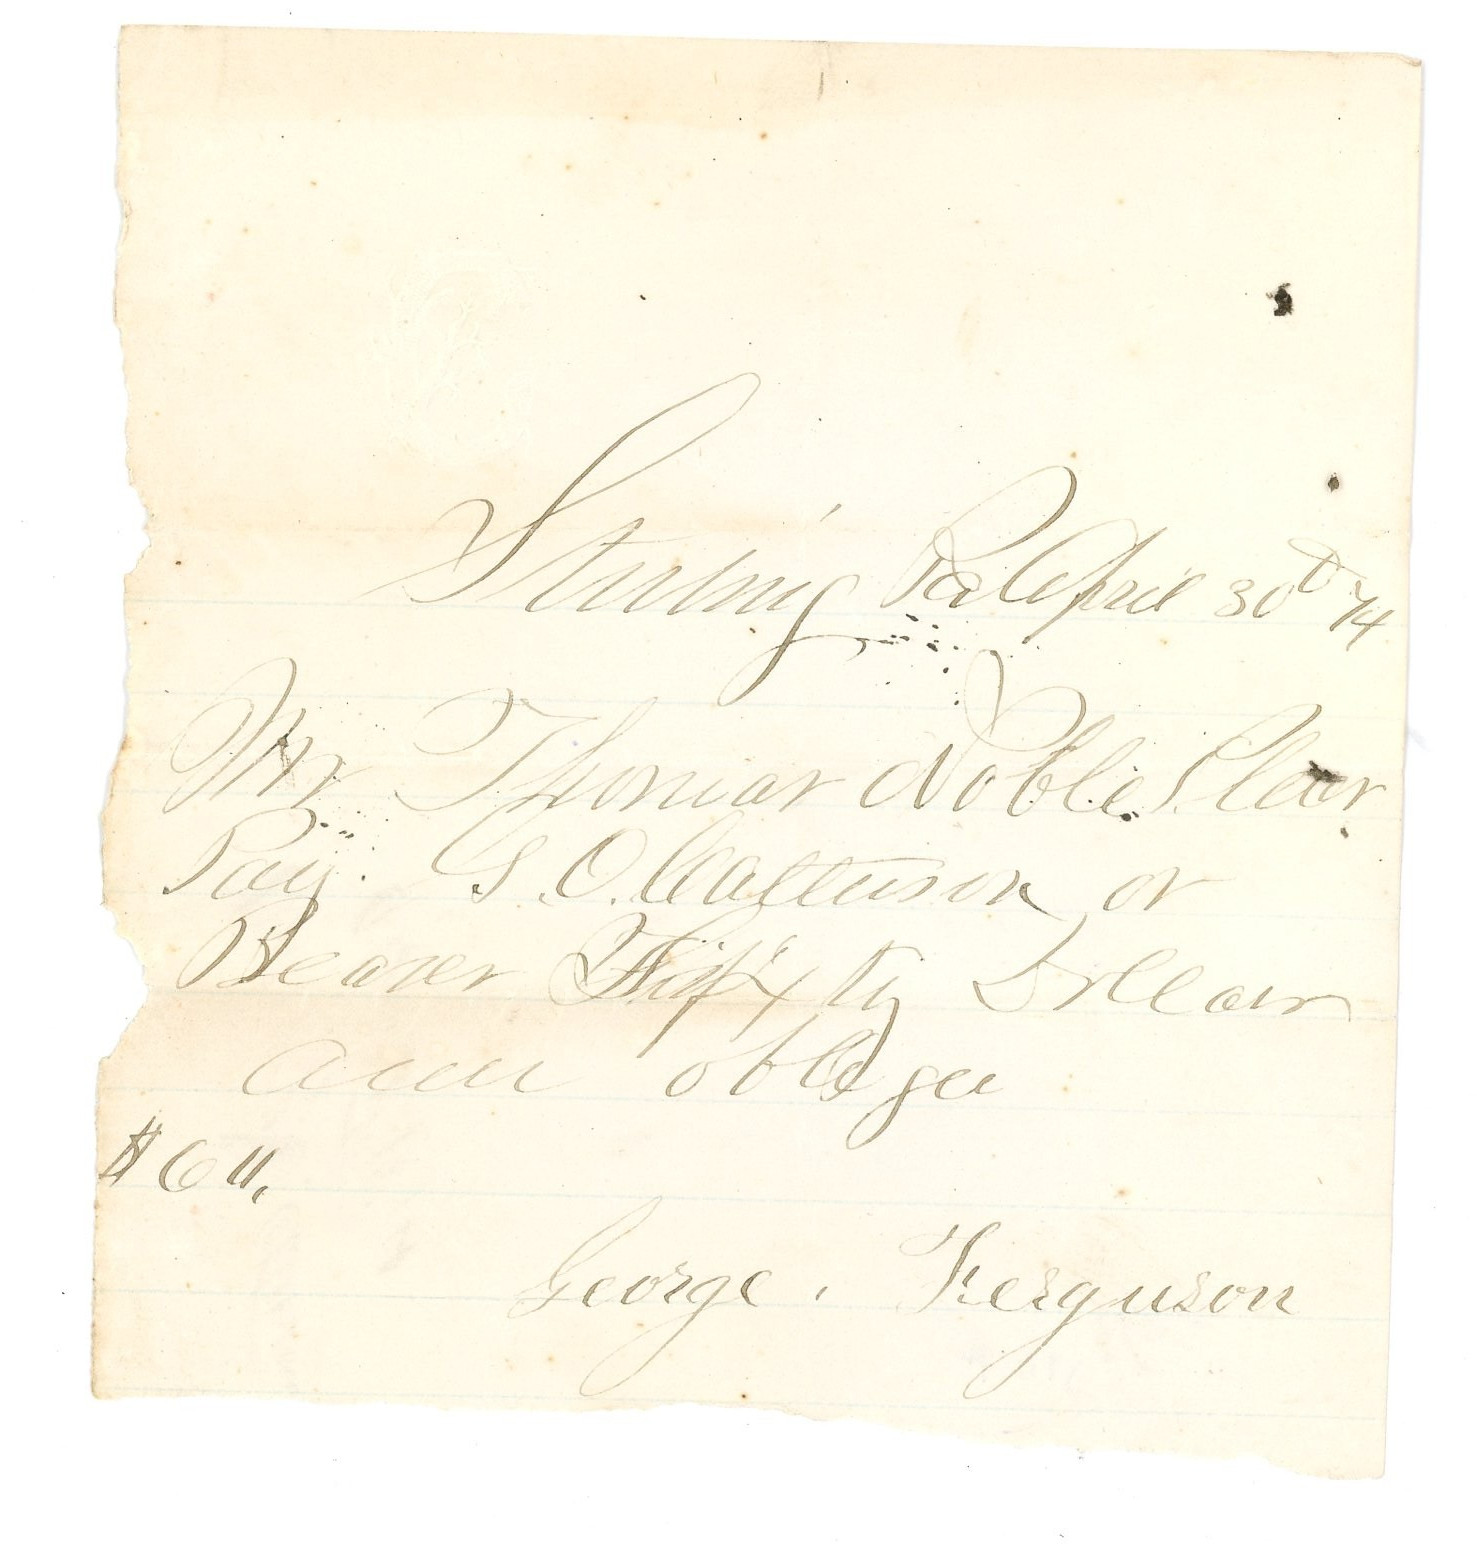 Sterling Pa April 30th 74
Mr Thomas Noble Pleas
Pay G.O. Catterson or
Bearer Sixty Dollars
and oblige
$60.
George. Ferguson